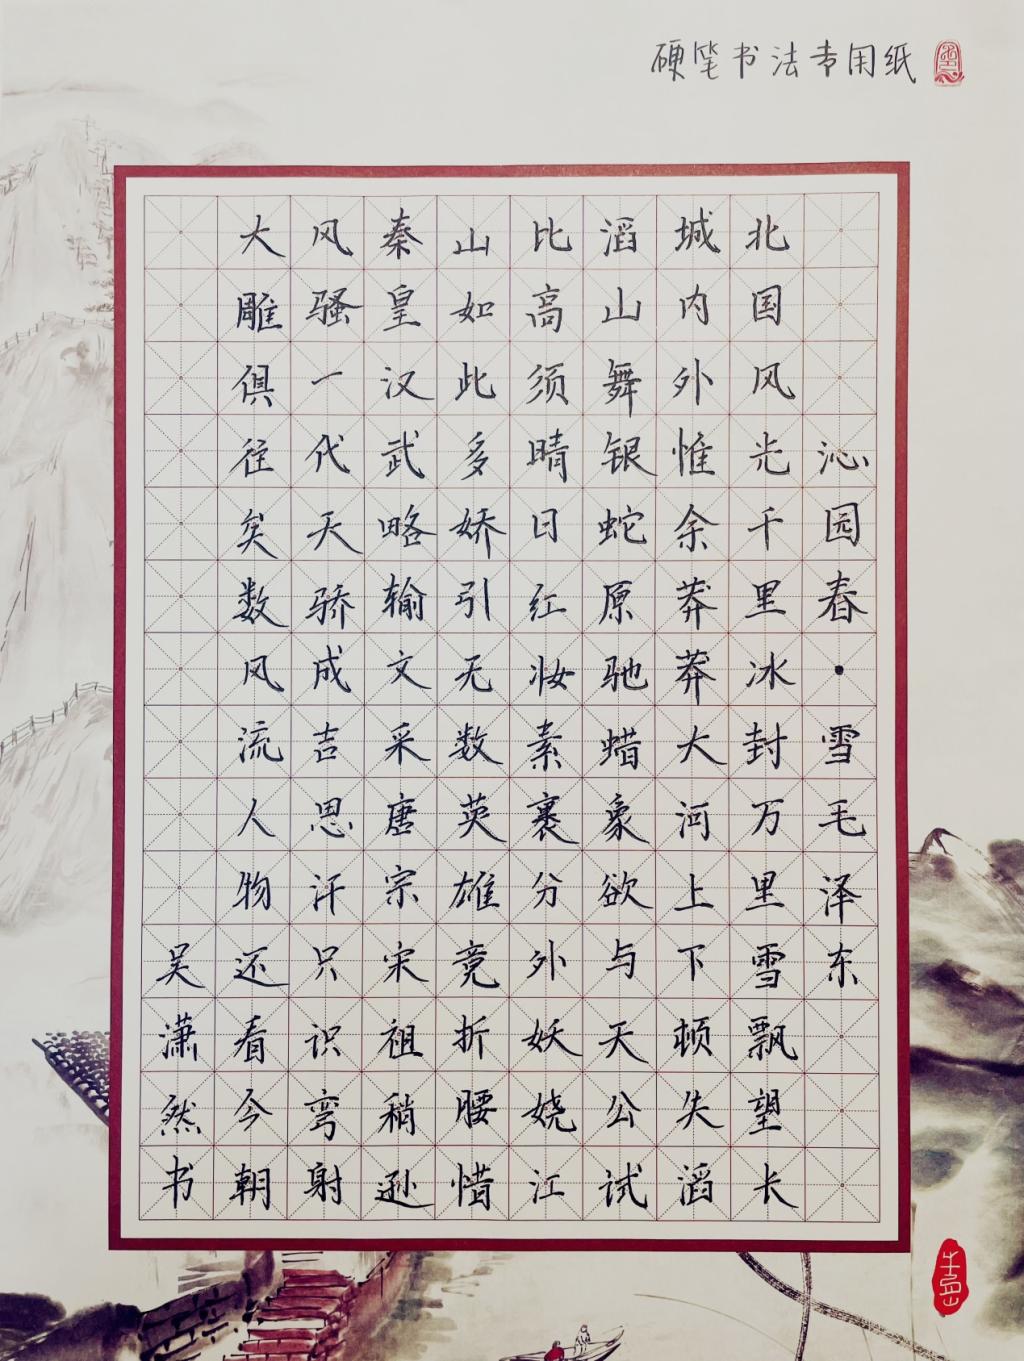 硬笔书法专用纸
沁园春·雪毛泽东
北国风光千里冰封万里雪飘望长
城内外惟余莽莽大河上下顿失滔
滔山舞银蛇原驰蜡象欲与天公试
比高须晴日红妆素裹分外妖娆江
山如此多娇引无数英雄竟折腰惜
秦皇汉武略输文采唐宗宋祖稍逊
风骚一代天骄成吉思汗只识弯射
大雕俱往矣数风流人物还看今朝
吴潇然书